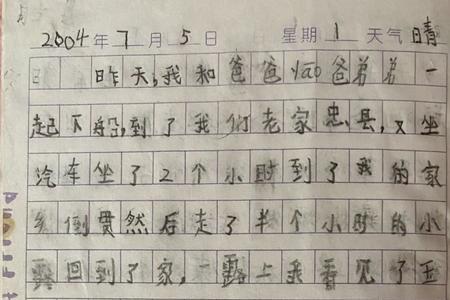 2004年7月5日 星期1 天气晴
昨天,我和爸爸yao爸弟弟一
起下船,到了我们老家忠县,又坐
汽车坐了2个小时到了我的家
乡倒贯然后走了半个小时的小
回到了家,一露上我看见了玉